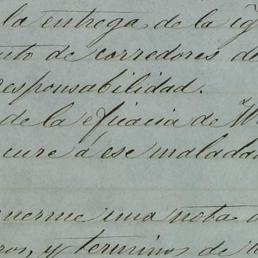 la entrega de la ig
nto de corredores d
responsabilidad.
de la eficacia de M
cure á ese malada
uerme una nota d
ros, y terminos de